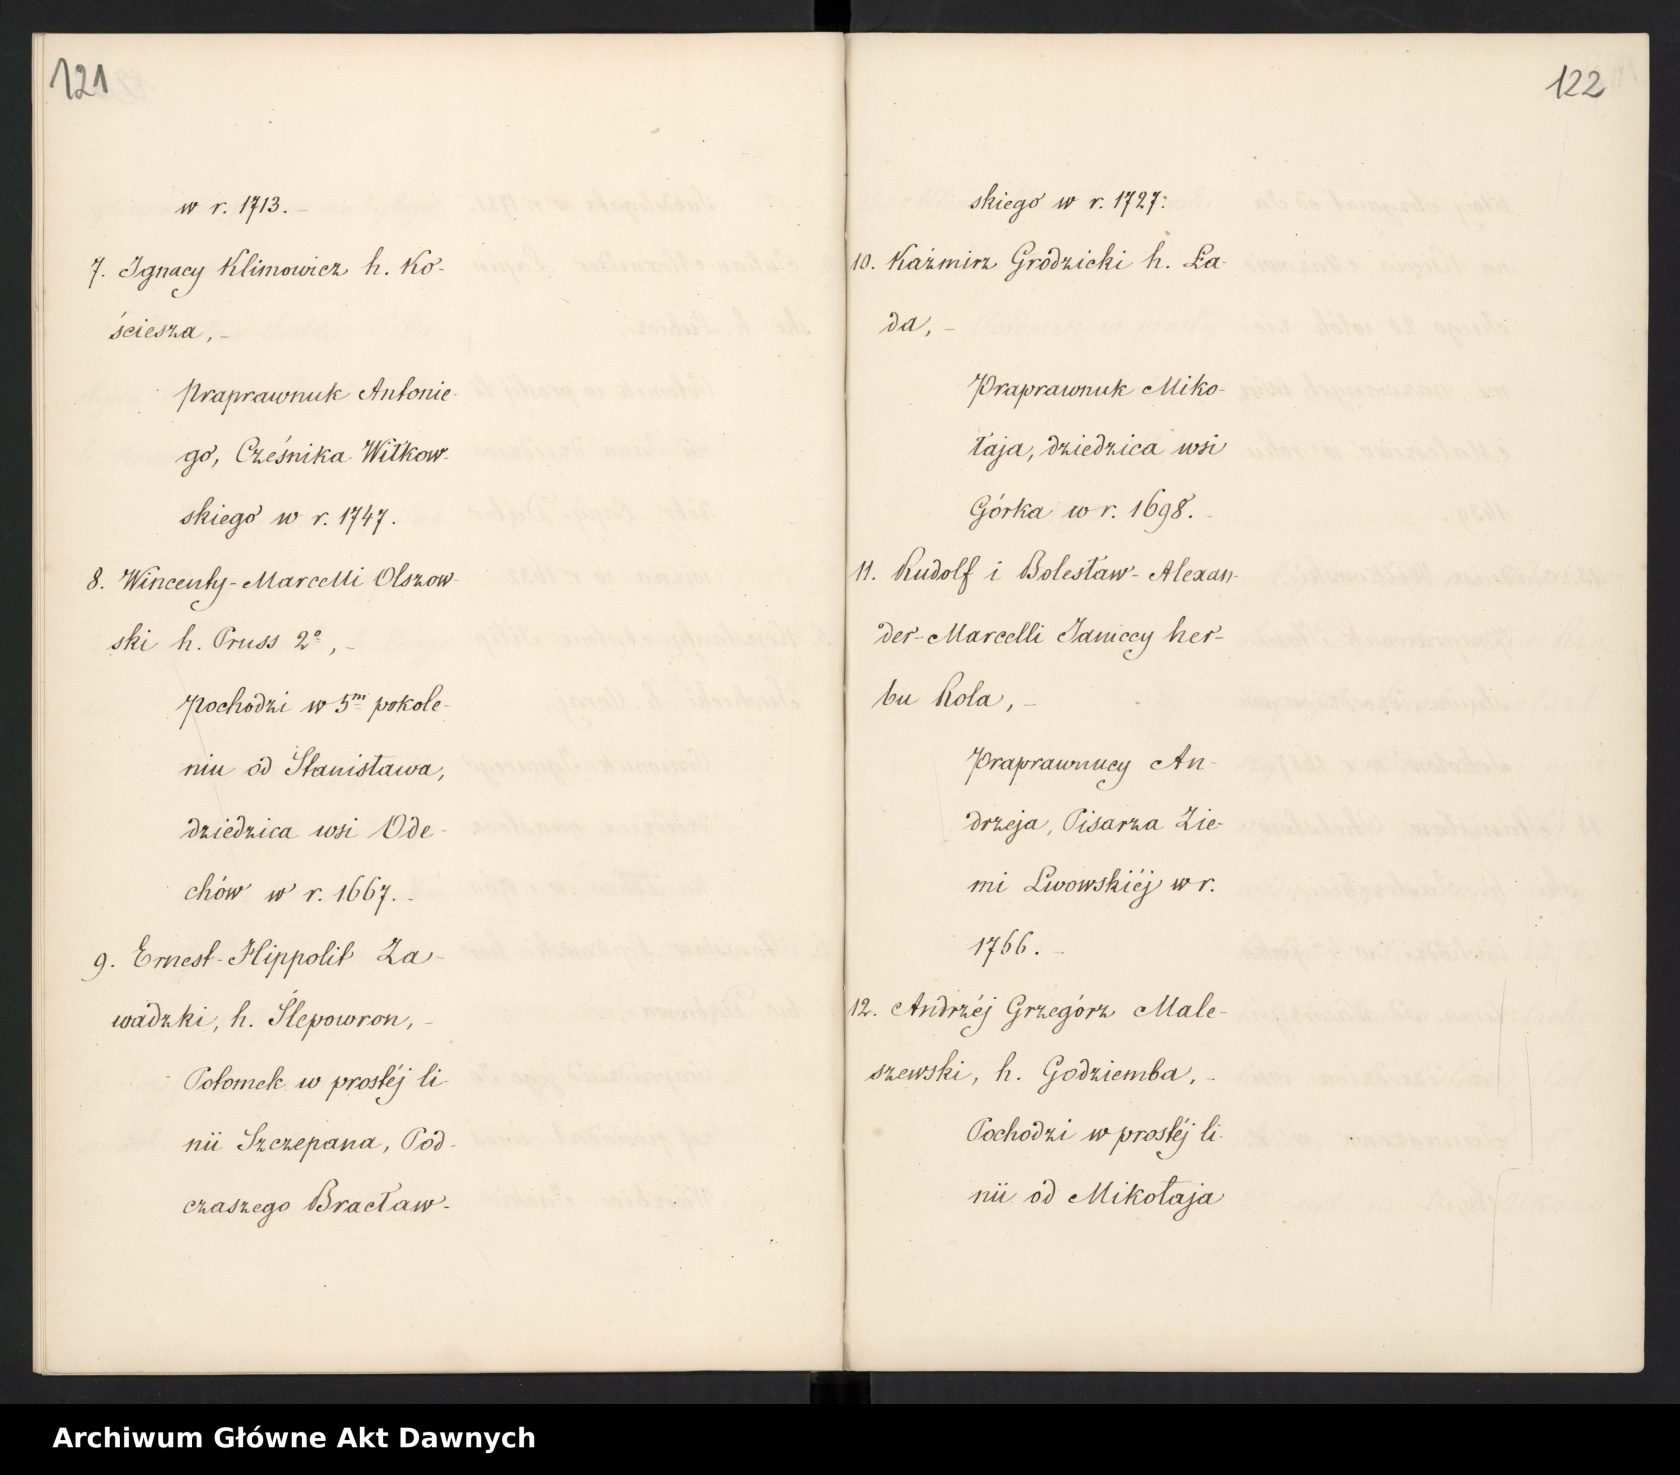 121
w r. 1713. –
7. Ignacy Klimowicz h. Ko-
ściesza, –
Praprawnuk Antonie-
go, Cześnika Witkow-
skiego w r. 1747.
8. Wincenty-Marcelli Olszow-
ski h. Pruss 2º, –
Pochodzi w 5m pokole-
niu od Stanisława,
dziedzica wsi Ode-
chów w r. 1667. –
9. Ernest-Hippolit Za-
wadzki, h. Ślepowron, –
Potomek w prostéj li-
nii Szczepana, Pod-
czaszego Bracław-
122
skiego w r. 1727.
10. Kaźmirz Grodzicki h. Ła-
da, –
Praprawnuk Miko-
łaja, dziedzica wsi
Górka w r. 1698. –
11. Rudolf i Bolesław-Alexan-
der-Marcelli Janiccy her-
bu Rola, –
Praprawnucy An-
drzeja, Pisarza Zie-
mi Lwowskiéj w r.
1766. –
12. Andrzéj Grzegórz Male-
szewski, h. Godziemba, –
Pochodzi w prostéj li-
nii od Mikołaja
Archiwum Główne Akt Dawnych